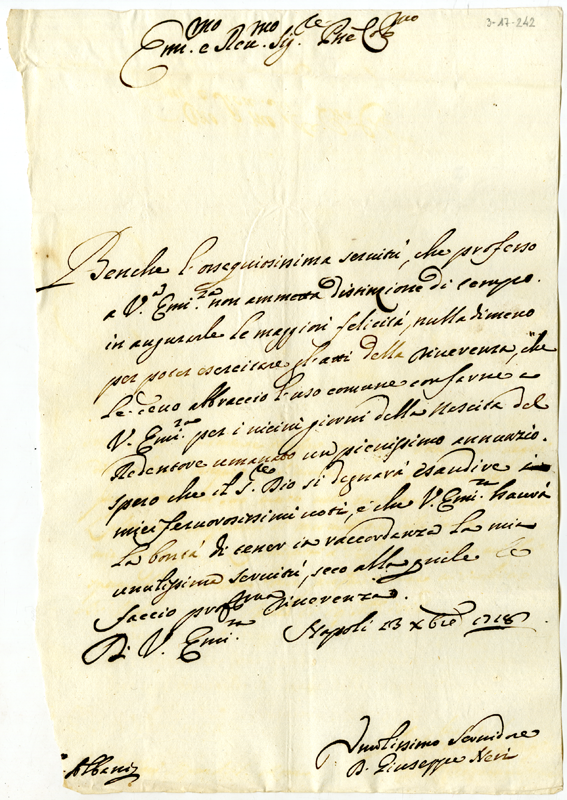 3-17-242
Emi.mo e Reu.mo Sig.re P̃ne Col.mo
Benche l'ossequiosissima seruitù, che professo
a V.a Emi.za non ammetta distinzione di tempo
in augurarle le maggiori felicità, nulladimeno
per poter esercitare gl'atti della riuerenza, che
le deuo abbraccio l'uso comune con farne a
V. Emi.za per i uicini giorni della Nascita del
Redentore umano un pienissimo annunzio.
spero che il S.re Dio si degnarà esaudire i
miei feruorosissimi uoti, e che V. Emi.za haurà
la bontà di tener in raccordanza la mia
umilissima seruitù, seco alla quale le
faccio prof.ma riuerenza.
Di V. Emi.za Napoli 13 Xbre 1718.
Umilissimo Seruidore
D. Giuseppe Neri
Albani